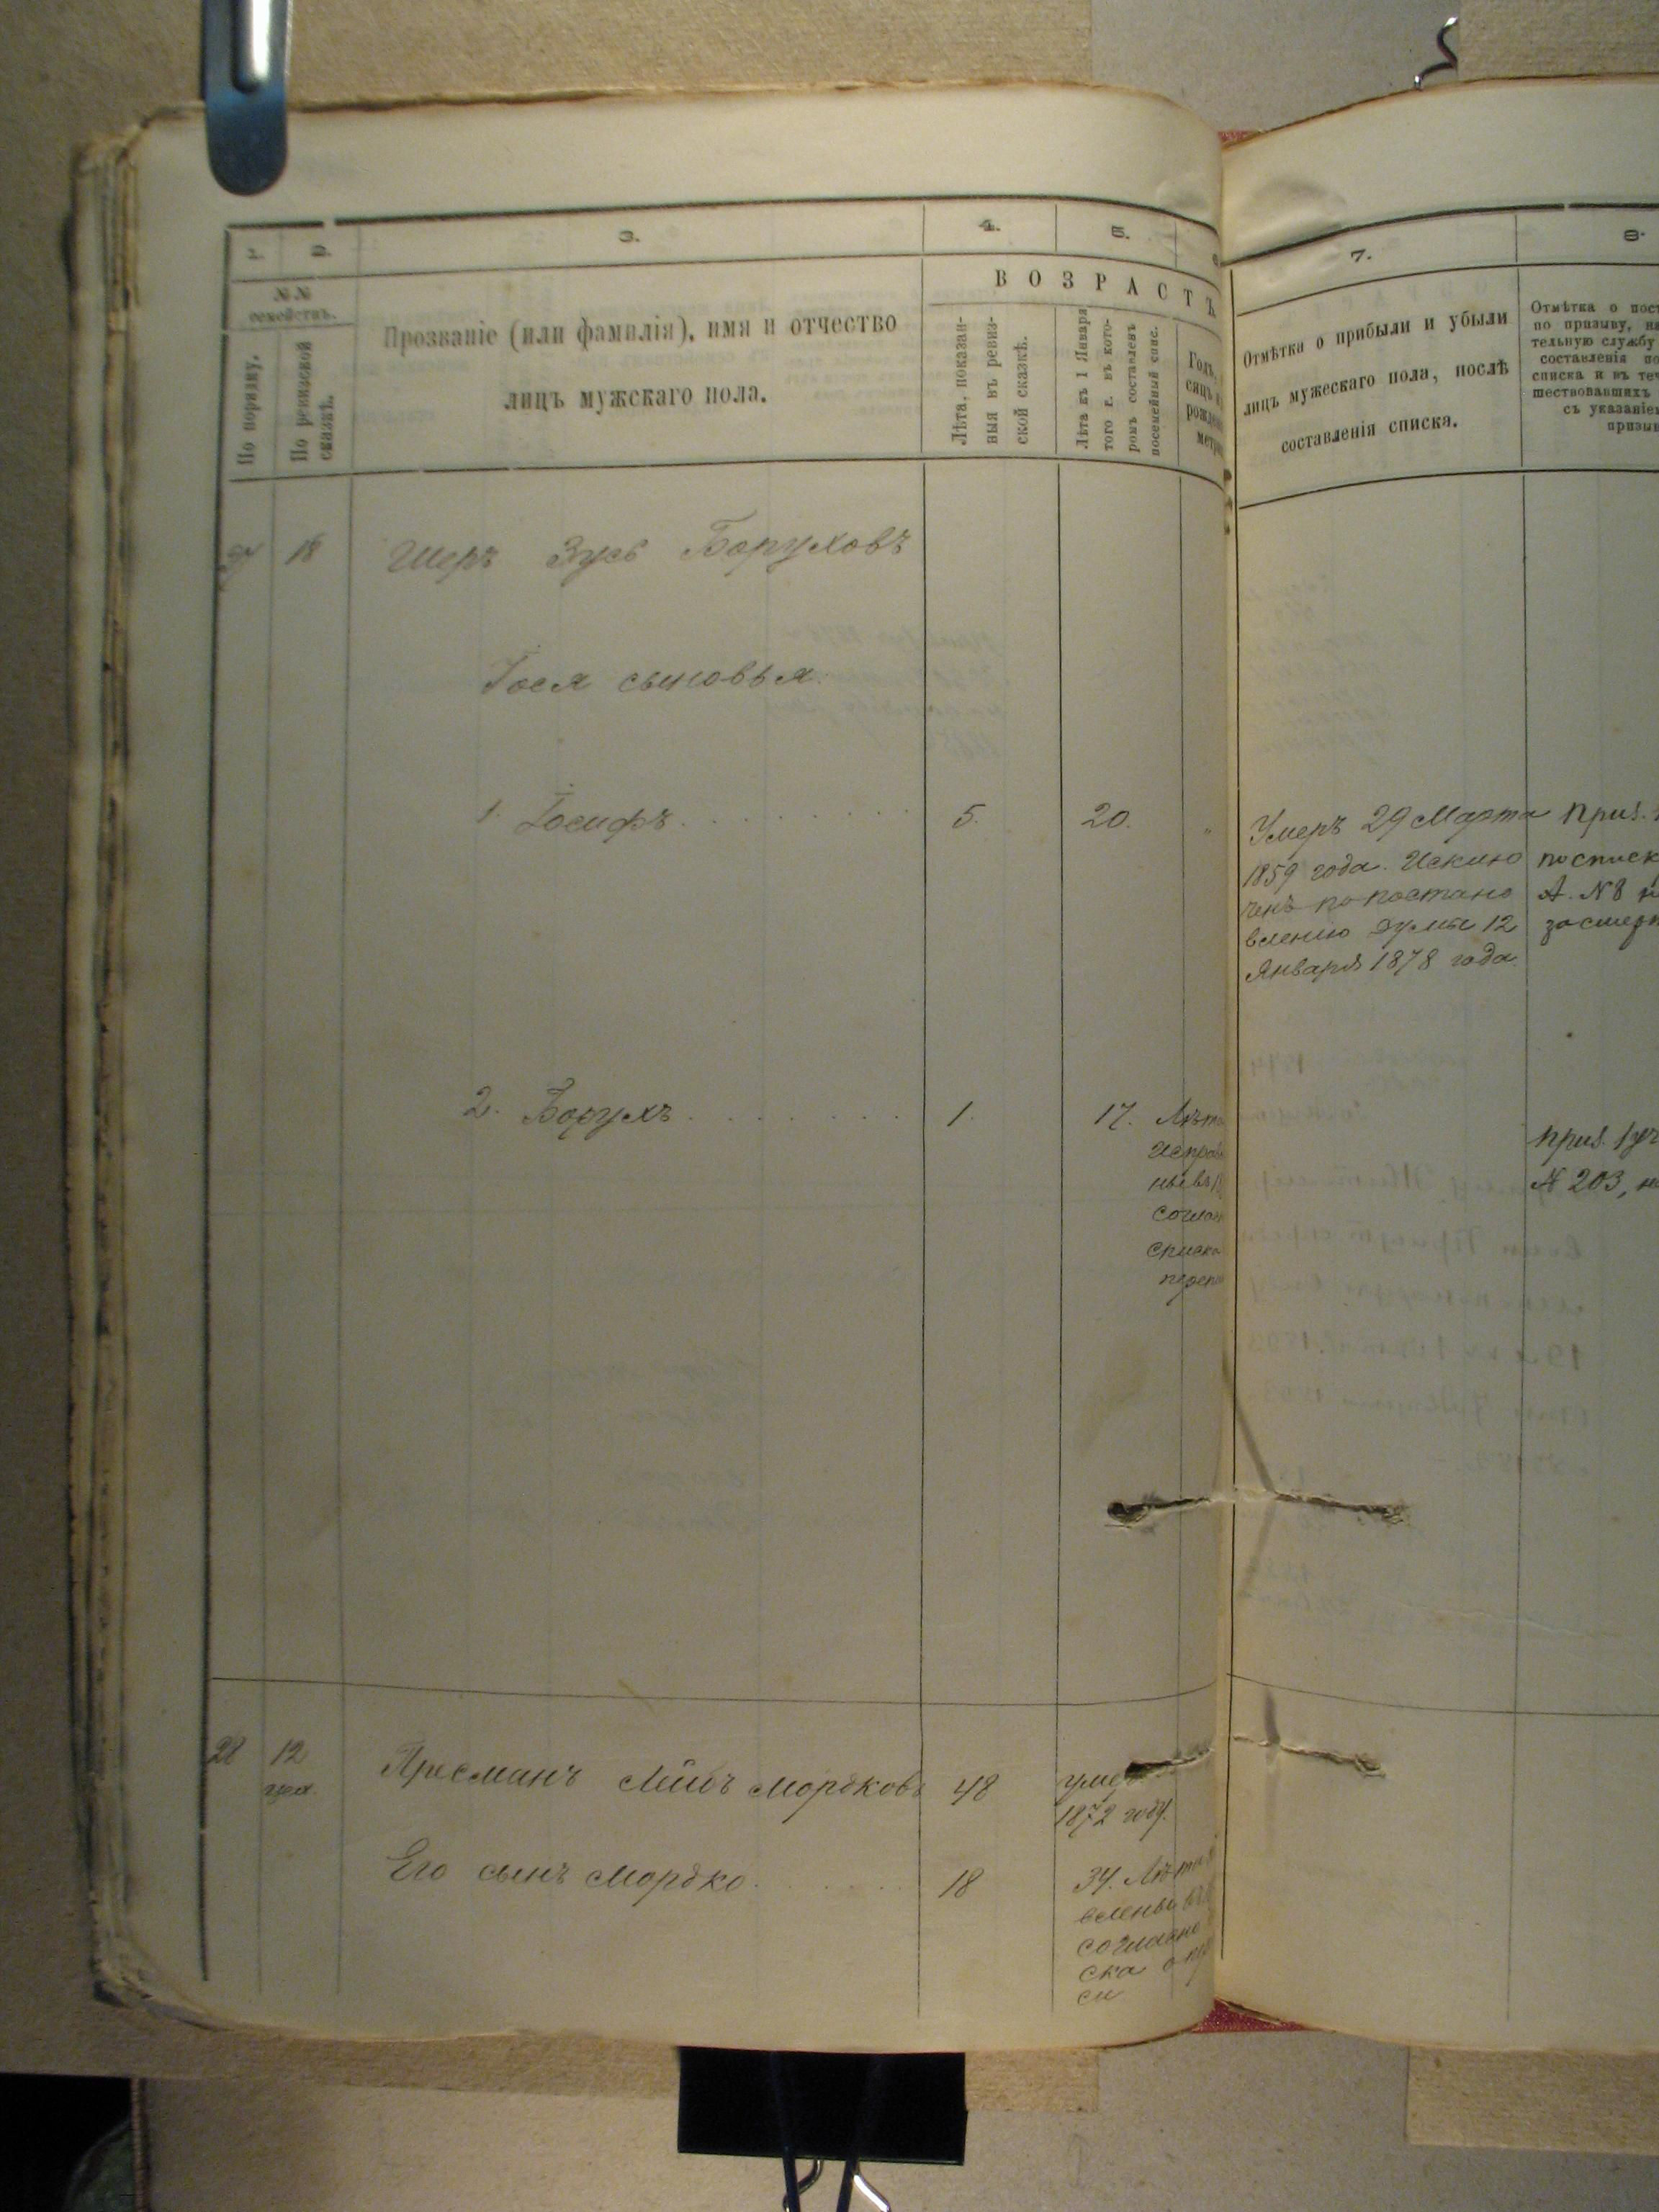 1. 2. 3. 4. 5.
№№ семействъ.
По порядку.
По ревизской сказкѣ.
Прозваніе (или фамилія), имя и отчество
лицъ мужскаго пола.
ВОЗРАСТЪ
Лѣта, показан-
ныя въ ревиз-
ской сказкѣ.
Лѣта къ 1 Января
того г. въ кото-
ромъ составленъ
посемейный спис.
Годъ,
7.
Отмѣтка о прибыли и убыли
лицъ мужескаго пола, послѣ
составленія списка.
8.
Отмѣтка о пост
по призыву, на
тельную службу
составленія по
списка и въ теч
шествовавшихъ
съ указаніем
призыв
27 18 Шеръ Зусь Боруховъ
сыновья
1. Іосифъ 5. 20. "
Умеръ 29 Марта
1859 года. Исклю
ченъ по постано
вленію Думы 12
Января 1878 года
Приз.
по списк
А. №8
2. Борухъ 1. 17. Лѣта
Исправ
соглас
списка
переп
Приз.
№ 203, н
28 12 Пресманъ Мордковъ 48 умеръ
1872 году.
Его сынъ Мордко 18 34. Лѣта
влены въ
согласно
ска о пер
си